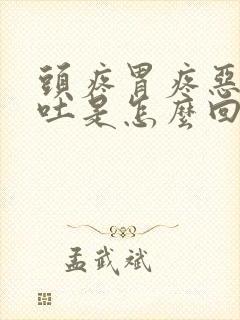 頭疼胃疼惡
吐是怎麼回
孟武斌